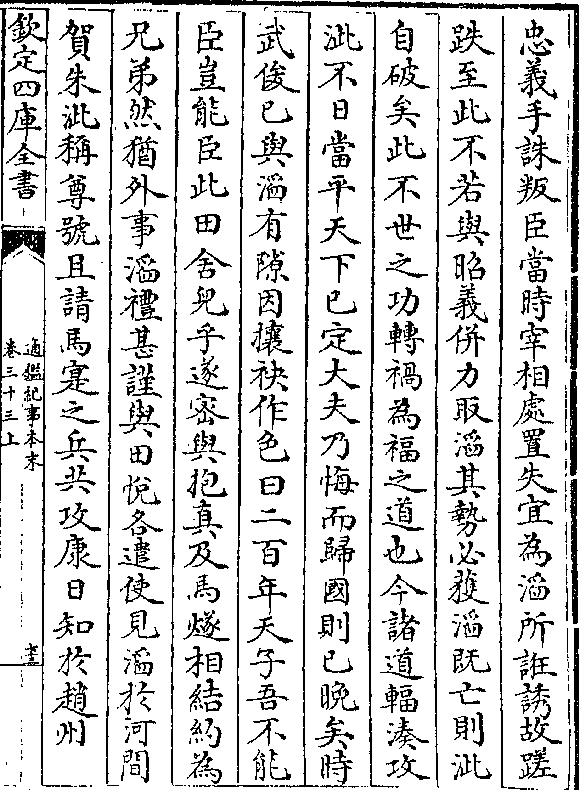 忠義手誅叛臣當時宰相處置失宜為滔所誑誘故蹉
跌至此不若與昭義併力取滔其勢必獲滔既亡則泚
自破矣此不世之功轉禍為福之道也今諸道輻湊攻
泚不日當平天下已定大夫乃悔而歸國則已晚矣時
武俊已與滔有隙因攘袂作色曰二百年天子吾不能
臣豈能臣此田舍兒乎遂密與抱真及馬燧相結約為
兄弟然猶外事滔禮甚謹與田悅各遣使見滔於河間
賀朱泚稱尊號且請馬寔之兵共攻康日知於趙州
欽定四庫全書
通鑑紀事本末
卷三十三上